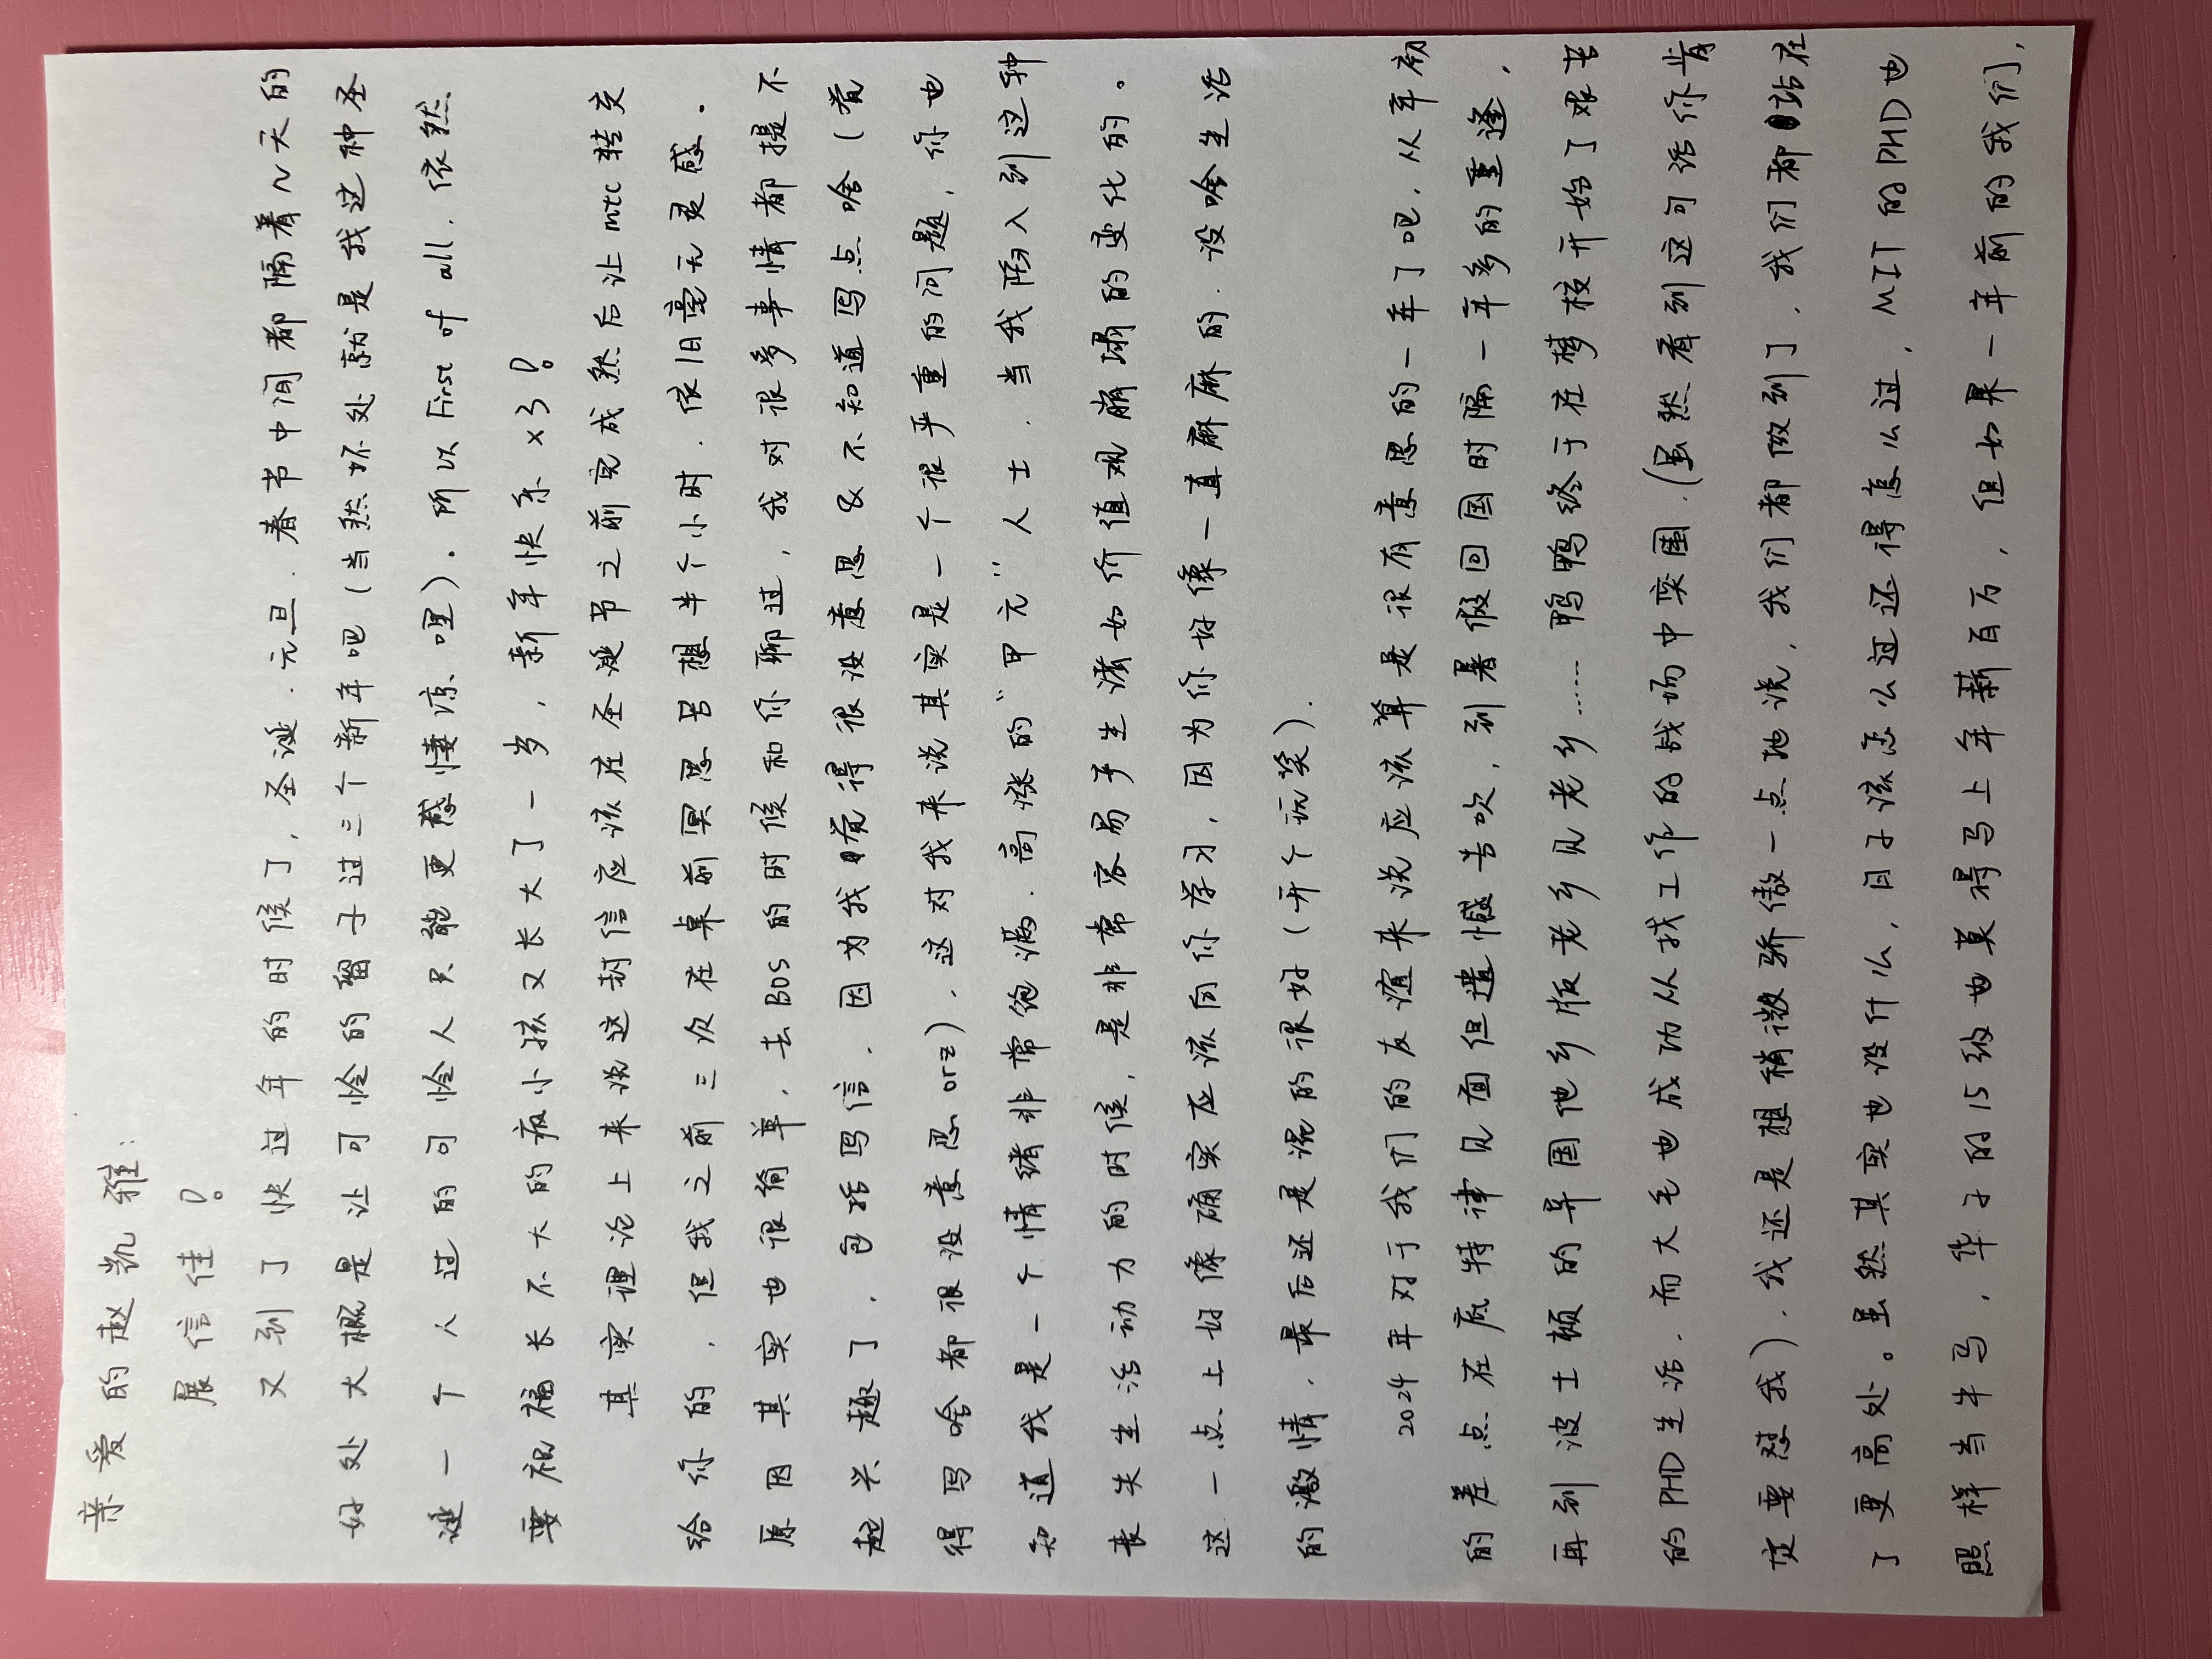 亲爱的赵凯雅：
展信佳！
又到了快过年的时候了，圣诞、元旦、春节中间都隔着几天的
好处大概是让可怜的留子过三个新年吧（当然坏处就是我这种圣
诞一个人过的可怜人只能更感悽凉哩）。所以First of all，依然
要祝福长不大的疯小孩又长大了一岁，新年快乐×3！
其实理论上来说这封信应该在圣诞节之前完成然后让mtc转交
给你的，但我之前三次在桌前冥思苦想半个小时，依旧毫无灵感。
原因其实也很简单，去BOS的时候和你聊过，我对很多事情都提不
起兴趣了，包括写信，因为我觉得很没意思&不知道写点啥（觉
得写啥都很没意思orz），这对我来说其实是一个很严重的问题，你也
知道我是一个情绪非常饱满、高涨的“甲亢”人士，当我陷入到这种
丧失生活动力的时候，是非常容易产生诸如价值观崩塌的变化的。
这一点上好像确实应该向你学习，因为你好像一直麻麻的，没啥生活
的激情，最后还是混的很好（开个玩笑）.
2024年对于我们的友谊来说应该算是很有意思的一年了吧，从年初
的差点在底特律见面但遗憾告吹，到暑假回国时隔一年多的重逢，
再到波士顿的异国他乡版老乡见老乡……鸭鸭终于在梦校开始了艰苦
的PHD生活，而大毛也成功从找工作的战场中突围，（虽然看到这句话你肯
定要怼我），我还是想稍微骄傲一点地说，我们都做到了，我们都站在
了更高处。虽然其实也没什么，日子该怎么过还得怎么过，MIT的PHD也
照样当牛马，华子的15级也莫得马上年薪百万，但如果一年前的我们，